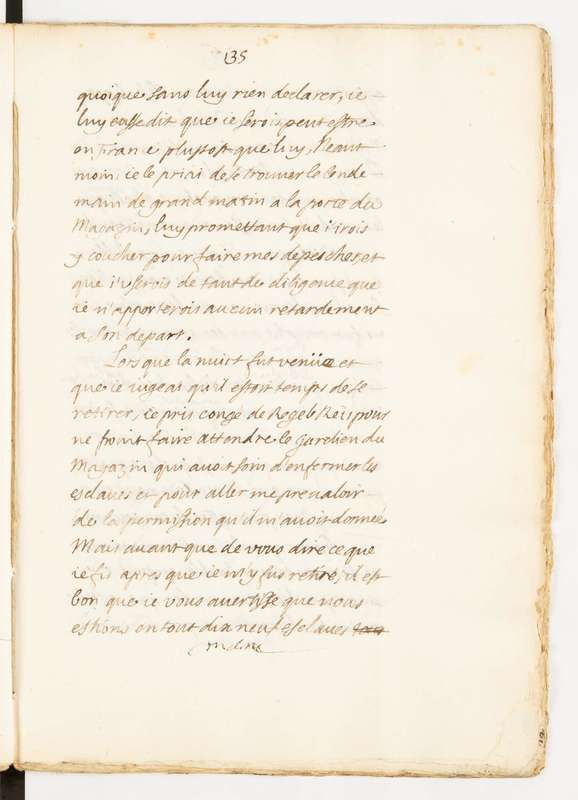 135
quoique sans luy rien declarer, ie
luy eusse dit que ie serois peut estre
en France plustost que luy, Neant
moins ie le priai de se trouver le lende
main de grand matin a la porte du
Magazin, luy promettant que i'irois
y coucher pour faire mes depesches, et
que i'userois de tant de diligence que
ie n'apporterois aucun retardement
a son depart.
Lors que la nuict fut venüe et
que ie iugeai qu'il estoit temps de se
retirer, ie pris congé de Regeb Reis pour
ne point faire attendre le gardien du
Magazin qui avoit soin d'enfermer les
esclaves et pour aller me prevaloir
de la permission qu'il m'avoit donnée
Mais avant que de vous dire ce que
ie fis apres que ie m'y fus retiré, il est
bon que ie vous avertisse que nous
estions en tout dix neuf esclaves